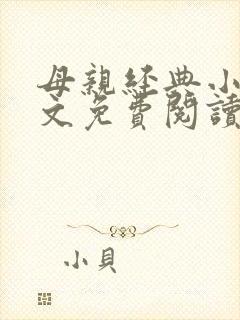 母親經典小
文免費閱讀
小貝